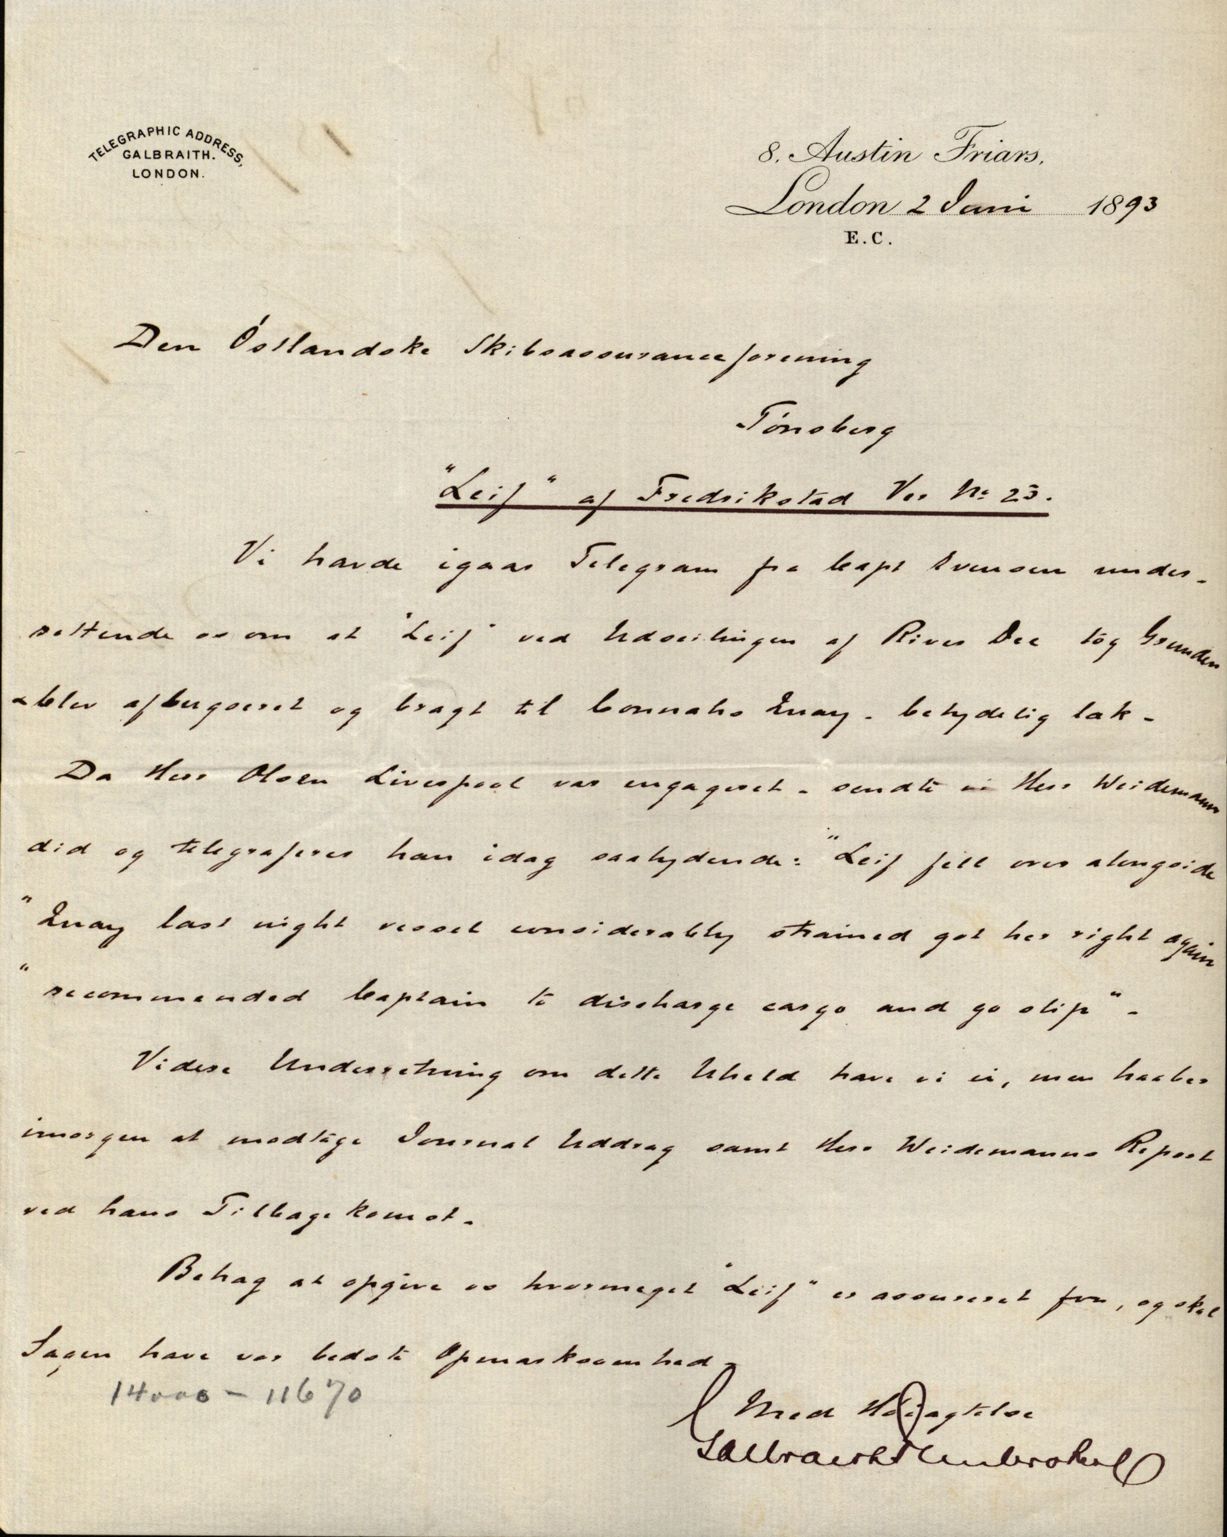 TELEGRAPHIC ADDRESS,
GALBRAITH.
LONDON.
8. Austin Friars,
London 2 Juni 1893
E.C.
Den Östlandske Skibsassuranceforening
Tönsberg
"Leif" af Fredrikstad Ver No 23.
Vi havde igaar Telegram fra Capt Svensen under-
rettende os om at "Leif" ved Udseilingen af River Dee tog Grunden
- blev afbugseret og bragt til Connahs Quay - betydelig læk -
Da Herr Olsen Liverpool var engageret - sendte vi Herr Weidemann
did og telegraferer han idag saalydende: "Leif fell over alongside
"Quay last night vessel considerably strained got her right again
"recommended Captain to discharge cargo and go slip" -
Videre Underretning om dette Uheld have vi ei, men haaber
imorgen at modtage Journal Uddrag samt Herr Weidemanns Report
ved hans Tilbagekomst -
Behag at opgive os hvormeget "Leif" er assureret for, og skal
Sagen have vor bedste Opmærksomhed -
14000 - 11670
Med Høiagtelse
Galbraith Pembroke & Co